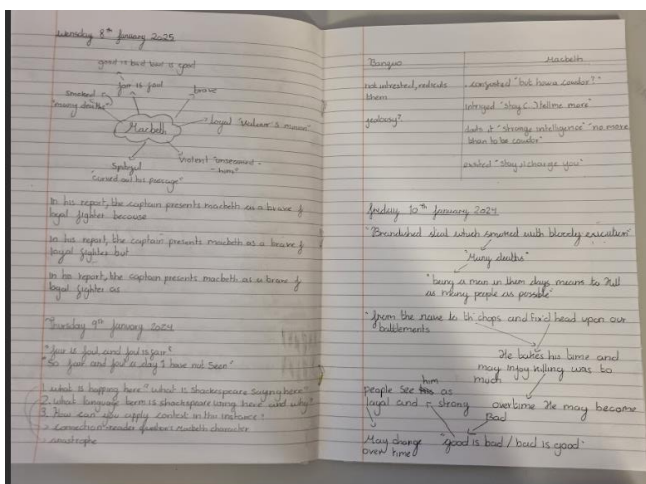 wensday 8th january 2025
good is bad bad is good
fair is foul
brave
smoked
"many deaths"
Macbeth
Loyal "valour's minion"
Spitful
"carved out his passage"
Violent "unseamed
him"
In his report, the captain presents macbeth as a brave &
loyal fighter because
In his report, the captain presents macbeth as a brave &
loyal fighter but
In his report, the captain presents macbeth as a brave &
loyal fighter as
Thursday 9th january 2024
"fair is foul and foul is fair"
"So foul and fair a day I have not seen"
1. what is happing here" what is shackespeare saying here"
2. what language term is shackespeare using here and why?
3. How can you apply context in this instance?
> connection: reader macbeth character
Banquo
Macbeth
not intrested,
them
jealousy?
confused "but how a cawdor?"
intriged "stay (..) tell me more"
"strange intelligence" "no more
than to be cawdor"
"stay i charge you"
friday 10th january 2024
"Brandished steel which smoked with bloody execution"
"Many deaths"
"being a man in them days means to kill
as many people as possible"
"from the nave to th' chops and fix'd head upon our
battlements
He takes his time and
may injoy killing was to
much
people see him as
loyal and strong
overtime He may become
Bad
May change
over time
"good is bad / bad is good"